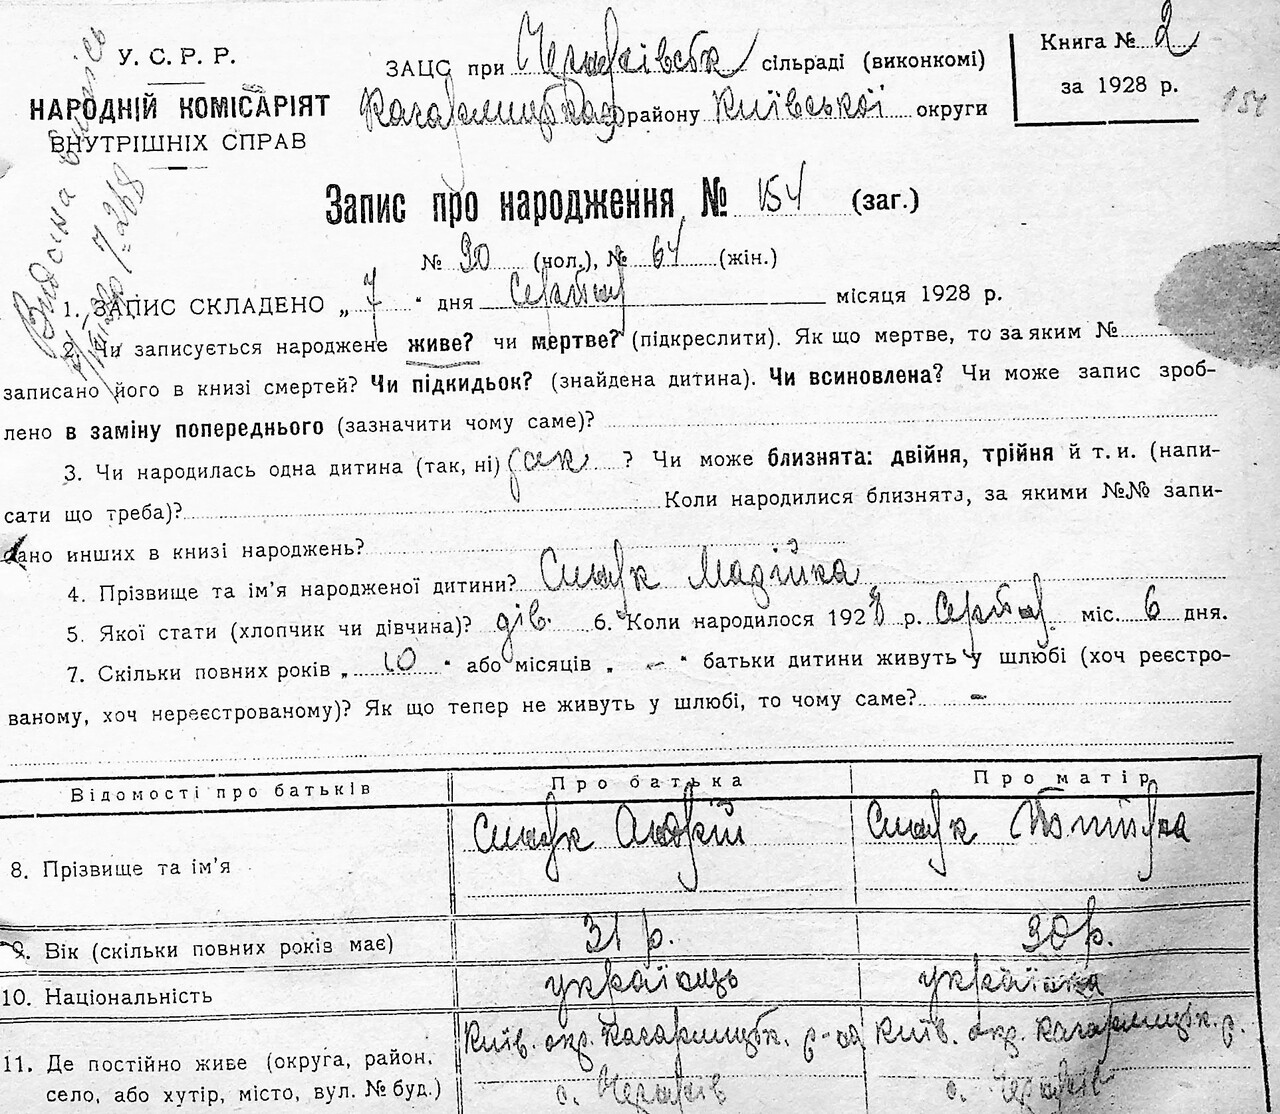 У. С. Р. Р.
НАРОДНІЙ КОМІСАРІЯТ
ВНУТРІШНІХ СПРАВ
ЗАЦС при Черняхівськ сільраді (виконкомі)
Кагарлицького району Київської округи
Книга № 2
за 1928 р.
154
Запис про народження № 154 (заг.)
№ 90 (чол.), № 64 (жін.)
1. ЗАПИС СКЛАДЕНО „ 7 “ дня Серпня місяця 1928 р.
2. Чи записується народжене живе? чи мертве? (підкреслити). Як що мертве, то за яким №
записано його в книзі смертей? Чи підкидьок? (знайдена дитина). Чи всиновлена? Чи може запис зроб-
лено в заміну попереднього (зазначити чому саме)?
3. Чи народилась одна дитина (так, ні) так ? Чи може близнята: двійня, трійня й т. и. (напи-
сати що треба)? Коли народилися близнята, за якими №№ запи-
сано инших в книзі народжень?
4. Прізвище та ім’я народженої дитини?
5. Якої стати (хлопчик чи дівчина)? дів. 6. Коли народилося 1928 р. Серпня міс. 6 дня.
7. Скільки повних років „ 10 “ або місяців „ — “ батьки дитини живуть у шлюбі (хоч реєстро-
ваному, хоч нереєстрованому)? Як що тепер не живуть у шлюбі, то чому саме? -
Відомості про батьків Про батька Про матір
8. Прізвище та ім’я Андрій
9. Вік (скільки повних років має) 31 р. 30 р.
10. Національність українець українка
11. Де постійно живе (округа, район, Київ. окр. Кагарлицьк. р-на Київ. окр. Кагарлицьк. р.
село, або хутір, місто, вул. № буд.) с. Черняхів с. Черняхів